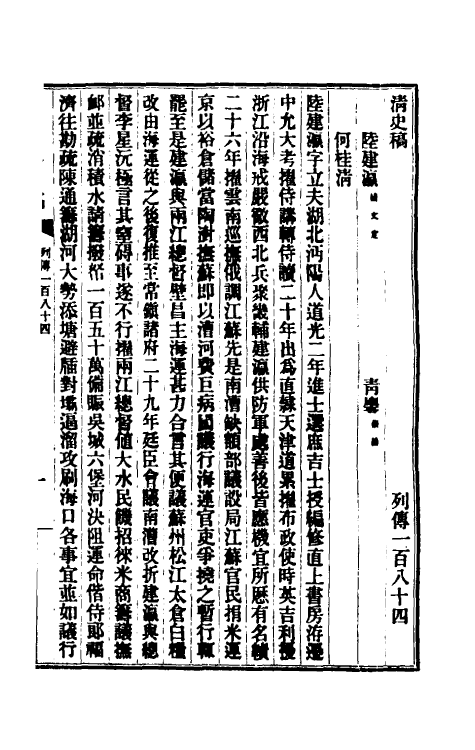 清史稿 列傳一百八十四
陸建瀛 楊文定 青麐 崇綸
何桂清
陸建瀛字立夫湖北沔陽人道光二年進士選庶吉士授編修直上書房洊遷
中允大考擢侍講轉侍讀二十年出爲直隸天津道累擢布政使時英吉利擾
浙江沿海戒嚴徵西北兵聚畿輔建瀛供防軍處善後皆應機宜所歷有名績
二十六年擢雲南巡撫俄調江蘇先是南漕缺額部議設局江蘇官民捐米運
京以裕倉儲當陶澍撫蘇卽以漕河費巨病國議行海運官吏爭撓之暫行輒
罷至是建瀛與兩江總督壁昌主海運甚力合言其便議蘇州松江太倉白糧
改由海運從之後復推至常鎭諸府二十九年廷臣會議南漕改折建瀛與總
督李星沅極言其窒碍事遂不行擢兩江總督値大水民饑招徠米商籌議撫
卹並疏消積水請籌撥帑一百五十萬備賑吳城六堡河決阻運命偕侍郞福
濟往勘疏陳通籌湖河大勢添塘避牐對壩逼溜攻刷海口各事宜並如議行
列傳一百八十四
一